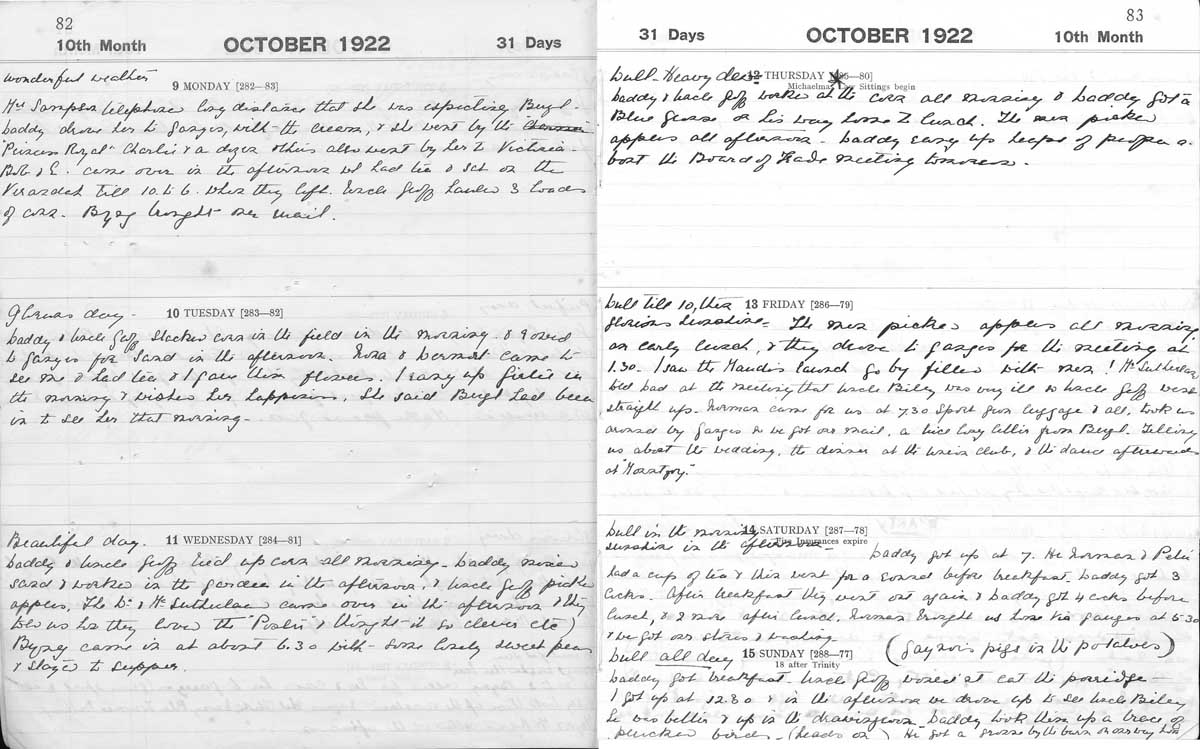 82
10th Month OCTOBER 1922 31 Days
wonderful weather
9 MONDAY [282—83]
Mrs telephone long distance that she was expecting Beryl.
Daddy drove her to Ganges, with the cream, & she went by the
"Princess Royal" Charlie & a dozen others also went by her to Victoria.
Bob & E. came over in the afternoon we had tea & sat on the
Verandah till 10 to 6. when they left. Uncle Geoff hauled 3 loads
of corn. Byng brought our mail.
Glorious day.
10 TUESDAY [283—82]
Daddy & Uncle Geoff stacked corn in the field in the morning &
to Ganges for sand in the afternoon. Nora & Dermott came to
see me & had tea & I gave them flowers. I rang up Girlie in
the morning & wished her happiness. She said Beryl had been
in to see her that morning.
Beautiful day.
11 WEDNESDAY [284—81]
Daddy & Uncle Geoff tied up corn all morning. Daddy mixed
sand & worked in the garden in the afternoon, & Uncle Geoff picked
apples. The Dr & Mrs Sutherland came over in the afternoon & they
told us how they loved the & thought it so clever etc)
Byng came in at about 6.30 with some lovely sweet peas
& stayed to supper.
83
31 Days OCTOBER 1922 10th Month
Dull. Heavy dew
12 THURSDAY [285—80]
Michaelmas Law Sittings begin
Daddy & Uncle Geoff worked at the corn all morning & Daddy got a
Blue grouse on his way home to lunch. The men picked
apples all afternoon. Daddy rang up heaps of people a-
bout the Board of Trade meeting tomorrow.
Dull till 10, then
13 FRIDAY [286—79]
glorious sunshine. The men picked apples all morning,
an early lunch, & they drove to Ganges for the meeting at
1.30. I saw the Maude's launch go by filled with men! Mr Sutherland
told Dad at the meeting that Uncle Biley was very ill so Uncle Geoff went
straight up. Norman came for us at 7.30 Sport gun luggage & all, took us
around by Ganges so we got our mail, a nice long letter from Beryl. Telling
us about the wedding, the dinner at the Union Club, & the dance afterwards
at
Dull in the morning
14 SATURDAY [287—78]
Fire Insurances expire
sunshine in the afternoon
Daddy got up at 7. He Norman & Peter
had a cup of tea & then went for a round before breakfast. Daddy got 3
cocks. After breakfast they went out again & Daddy got 4 cocks before
lunch, & 2 more after lunch. Norman brought us home via Ganges at 5.30
& we got our stores &
(Gaynor's pigs in the potatoes)
Dull all day
15 SUNDAY [288—77]
18 after Trinity
Daddy got breakfast. Uncle Geoff wouldn't eat the porridge—
I got up at 12.30 & in the afternoon we drove up to see Uncle Biley,
he was better & up in the drawingroom. Daddy took them up a brace of
plucked birds— (heads on) He got a grouse by the barn on our way home